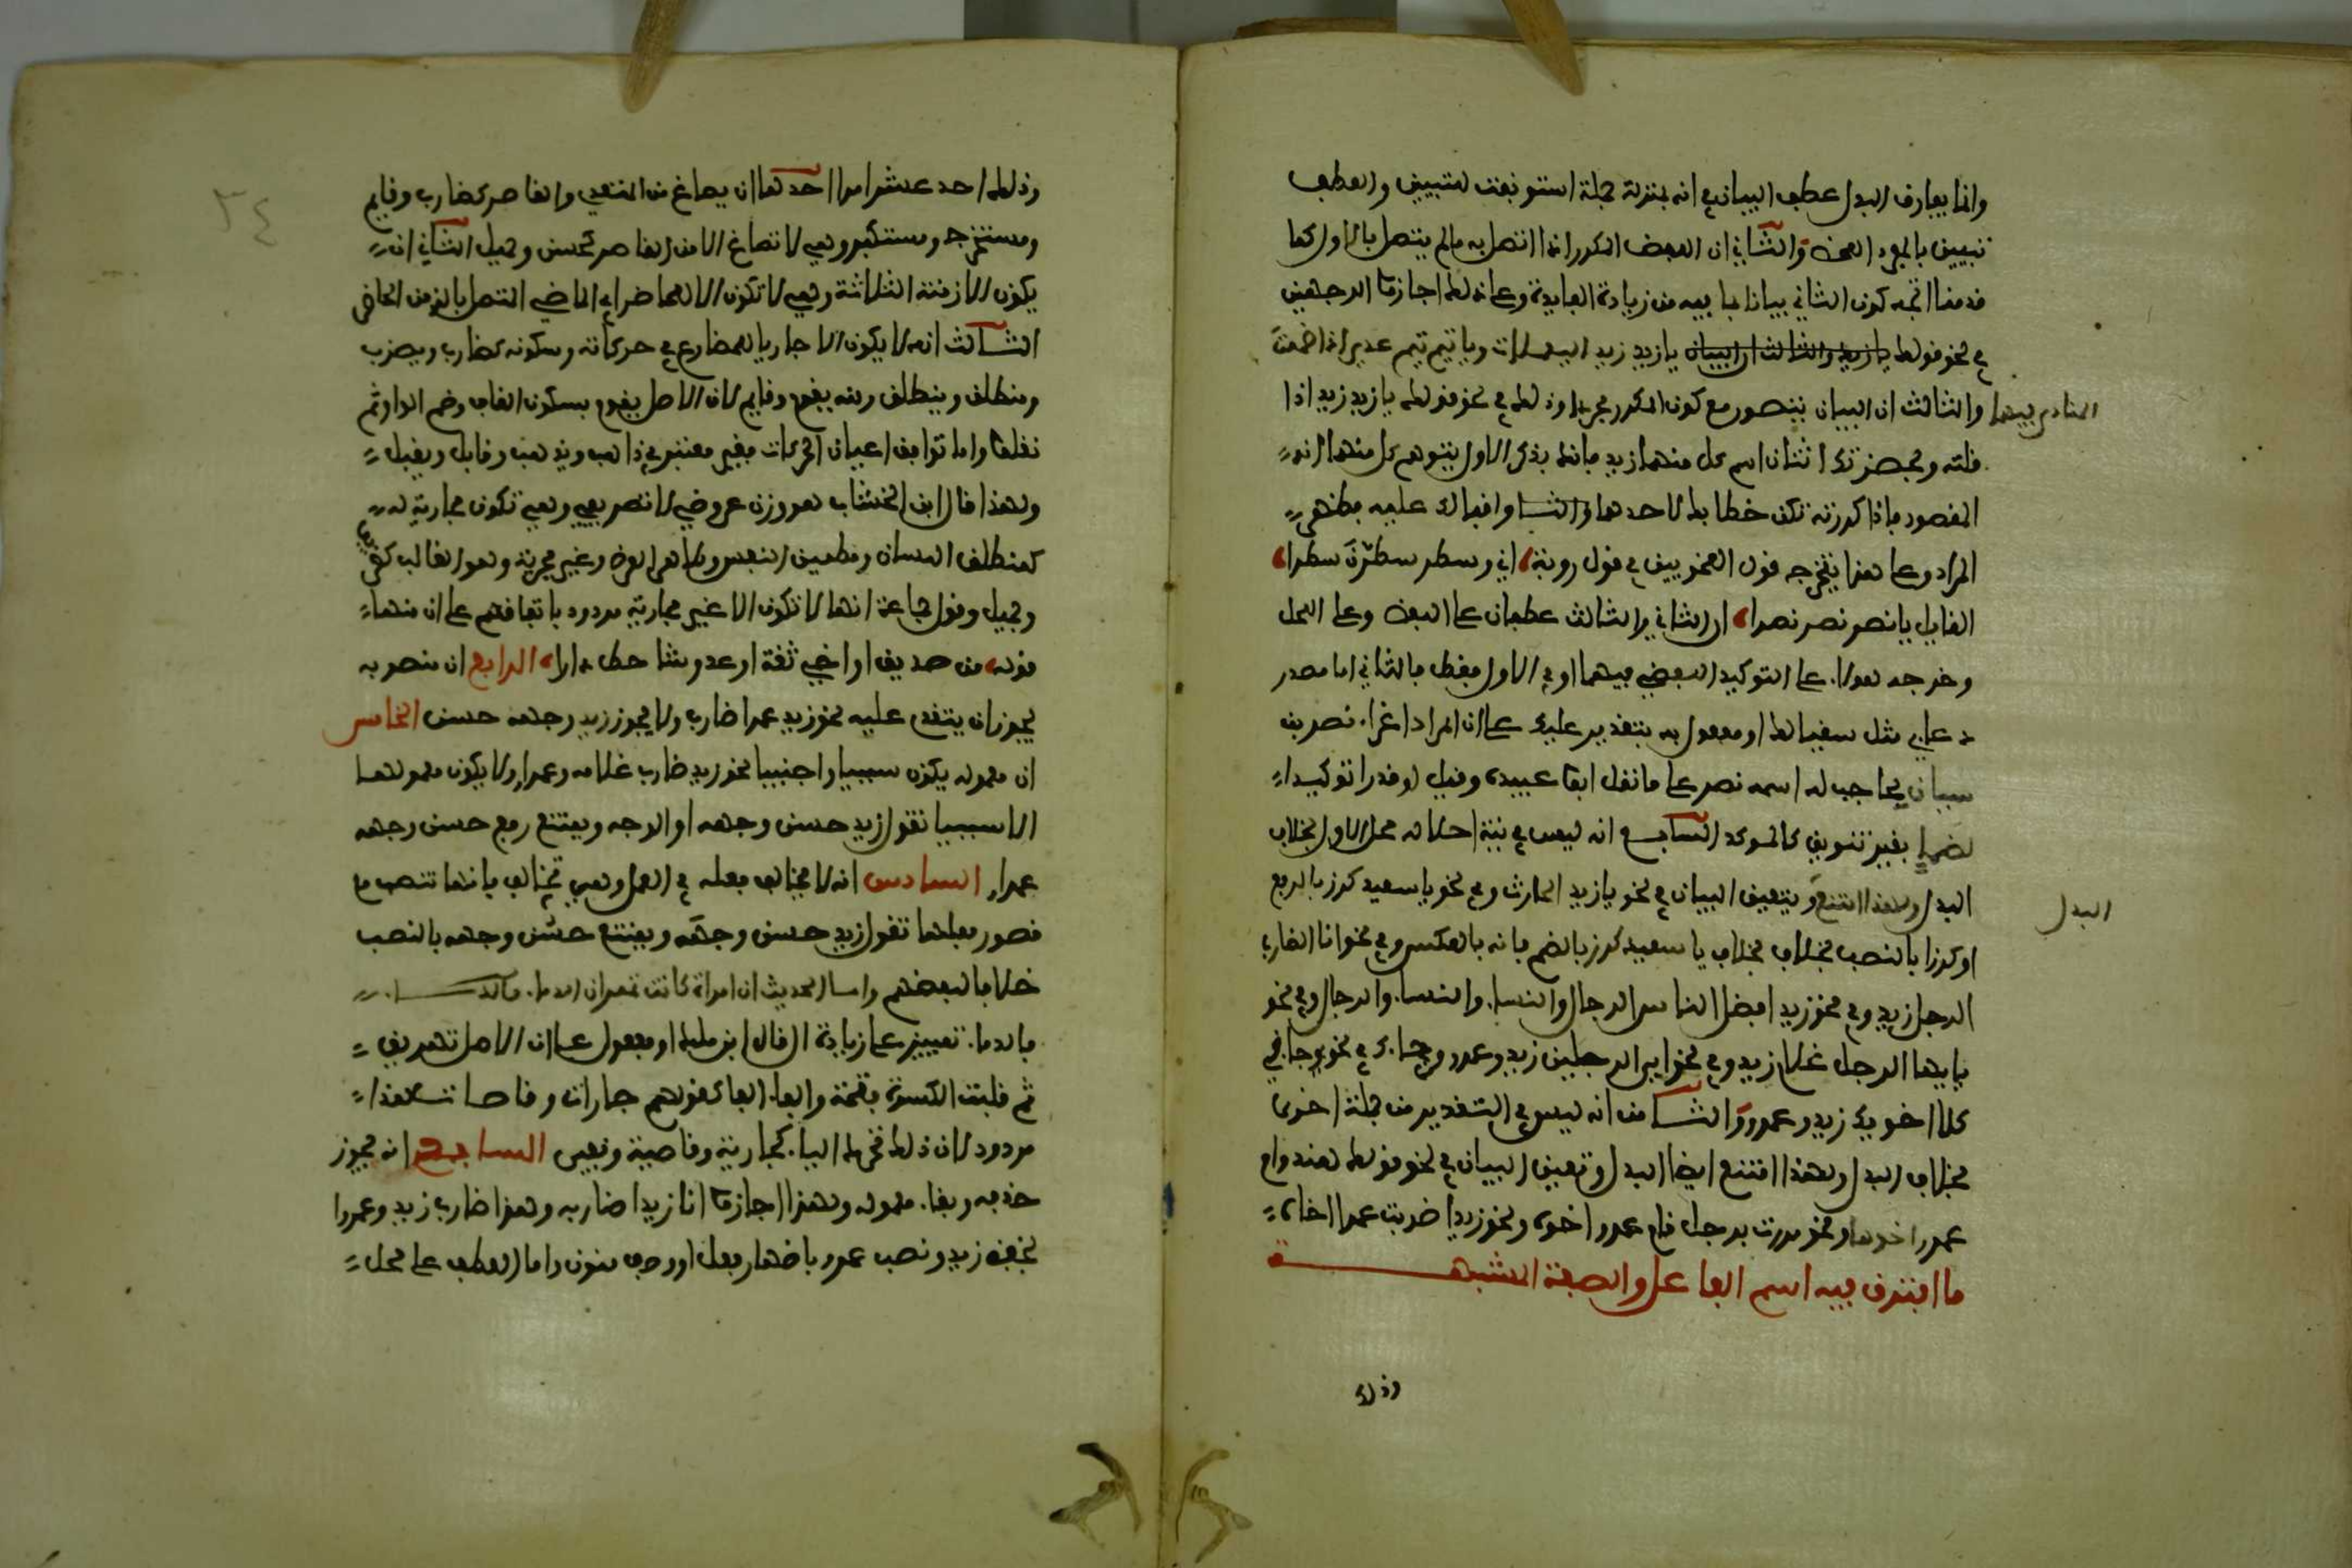 وانما يفارق البدل عطف البيان في انه بمنزلة جملة استونفت للتبيين والعطف
تبيين بالمفرد المحض والثاني ان اللفظ المكرر اذا اتصل به مالم يتصل بالاول كما
قدمنا اتجه كون الثاني بيانا بما فيه من زيادة الفايدة وعلى ذلك اجازوا الوجهين
في نحو قولك يا زيد زيد اليعملات ويا تيم تيم عدي اذا ضممت
المنادى فيهما والثالث ان البيان يتصور مع كون المكرر مجردا وذلك في نحو قولك يا زيد زيد اذا
قلته وبحضرتك اثنان اسم كل منهما زيد فانك بذكر الاول يتوهم كل منهما انه
المقصود فاذا كررته تكن خطابك لاحدهما واقبالك عليه فظهر
المراد وعلى هذا يتخرج قول النحويين في قول روبة اني وسطر سطرن سطرا
القايل يا نصر نصر نصرا ان الثاني والثالث عطفان على اللفظ وعلى المحل
وخرجه هولا على التوكيد اللفظي فيهما او في الاول فقط فالثاني اما مصدر
دعاءي مثل سقيا لك او مفعول به بتقدير عليك على ان المراد اغراء نصر بن
سيار بحاجب له اسمه نصر على ما نقل ابو عبيدة وقيل لو قدرا توكيدا
لضما بغير تنوين كالموكد السابع انه ليس في نية احلاله محل الاول بخلاف
البدل ولهذا امتنع البدل وتعين البيان في نحو يا زيد الحارث وفي نحو يا سعيد كرز بالرفع
او كرزا بالنصب بخلاف يا سعيد كرز بالضم فانه بالعكس وفي نحو انا الضارب
الرجل زيد وفي نحو زيد افضل الناس الرجال والنساء والنساء والرجال وفي نحو
يا ايها الرجل غلام زيد وفي نحو اي الرجلين زيد وعمرو جاءك وفي نحو جاءني
كلا اخويك زيد وعمرو والثامن انه ليس في التقدير من جملة اخرى
بخلاف البدل ولهذا امتنع ايضا البدل وتعين البيان في نحو قولك هند قام
عمرو اخوها ونحو مررت برجل قام عمرو اخوه ونحو زيدا ضربت عمرا اخاه
ما افترق فيه اسم الفاعل والصفة المشبهة
وذلك
٣٤
وذلك احد عشر امرا احدها ان يصاغ من المتعدي والقاصر كضارب وقايم
ومستخرج ومستكبر وهي لا تصاغ الا من القاصر كحسن وجميل الثاني انه
يكون للازمنة الثلاثة وهي لا تكون الا للحاضر اي الماضي المتصل بالزمن الحاضر
الثالث انه لا يكون الا جاريا للمضارع في حركاته وسكونه كضارب ويضرب
ومنطلق وينطلق ومنه يقوم وقايم لان الاصل يقوم بسكون القاف وضم الواو ثم
نقلها واما توافق اعيان الحركات فغير معتبر في ذاهب ويذهب وقابل ويقبل
ولهذا قال ابن الخشاب هو وزن عروضي لا تصريفي وهي تكون مجارية له
كمنطلق اللسان ومطمين النفس وطاهر العرض وغير مجرية وهو الغالب كظريف
وجميل وقول جماعة انها لا تكون الا غير مجارية مردود باتفاقهم على ان منها
قوله من صديق او اخي ثقة او عدو شاحط دارا الرابع ان منصوبه
يجوز ان يتقدم عليه نحو زيد عمرا ضارب ولا يجوز زيد وجهه حسن الخامس
ان معموله يكون سببيا واجنبيا نحو زيد ضارب غلامه وعمرا ولا يكون معمولها
الا سببيا تقول زيد حسن وجهه او الوجه ويمتنع رفع حسن وجهه
عمرا السادس انه لا يخالف فعله في العمل وهي تخالف فانها تنصب مع
قصور فعلها تقول زيد حسن وجهه ويمتنع حسن وجهه بالنصب
خلافا لبعضهم واما الحديث ان امراة كانت تهراق الدماء
فالدماء تمييز على زيادة ال قال ابن ملك او مفعول على ان الاصل تهريق
ثم قلبت الكسرة فتحة والياء الفا كقولهم جاراة وفاصاة وهذا
مردود لان ذلك شرطه الياء كجارية وناصية وبقي السابع انه يجوز
حذفه وبقاء معموله ولهذا اجازوا انا زيدا ضاربه وهذا ضارب زيد وعمرا
بخفض زيد ونصب عمرو باضمار فعل او وصف منون واما العطف على محل
البدل